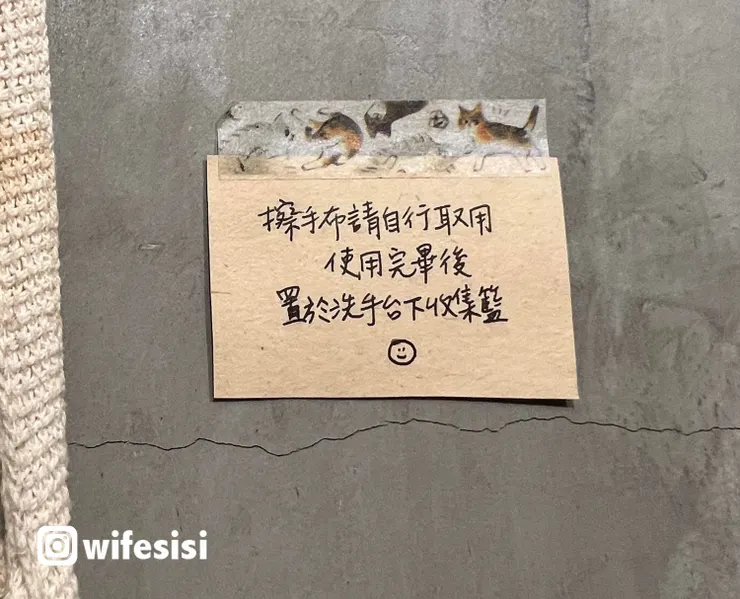 擦手布請自行取用
使用完畢後
置於洗手台下收集籃
wifesisi